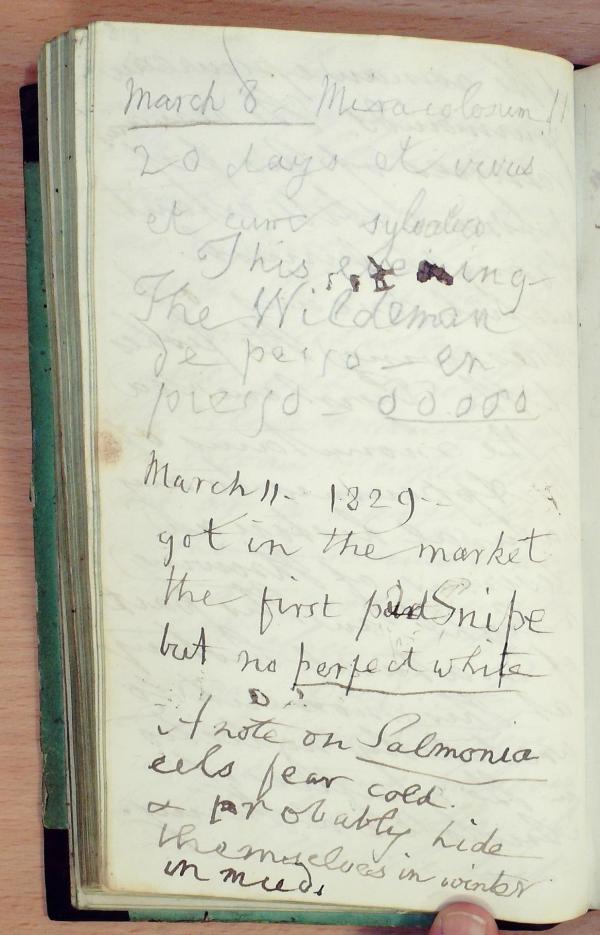 March 8 Miracolosum!!
20 days et vivus
et cum
This evening -
The Wildeman
de -- en
- 00.000
March 11 - 1829 -
got in the market
the first Snipe
but no perfect white
A note on Salmonia
eels fear cold.
& probably hide
themselves in winter
in mud.